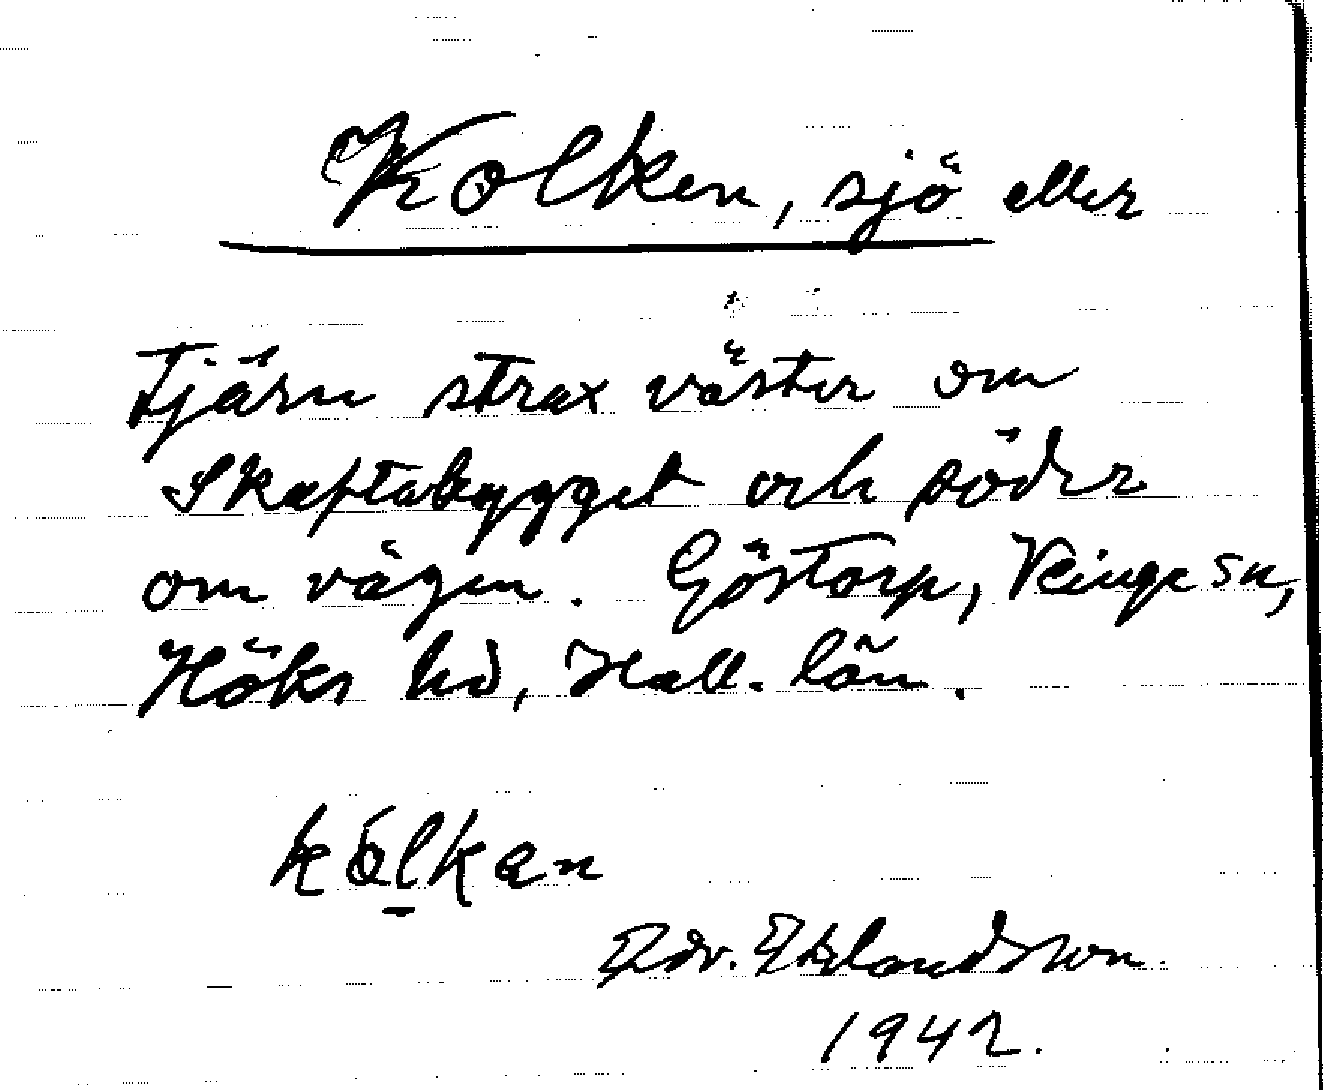 Kolken, sjö eller
tjärn strax väster om
Skaftabygget och söder
om vägen. Göstorp, Veinge sn,
Höks hd, Hall. län.
kolkan
Edv. Eklandsson.
1942.